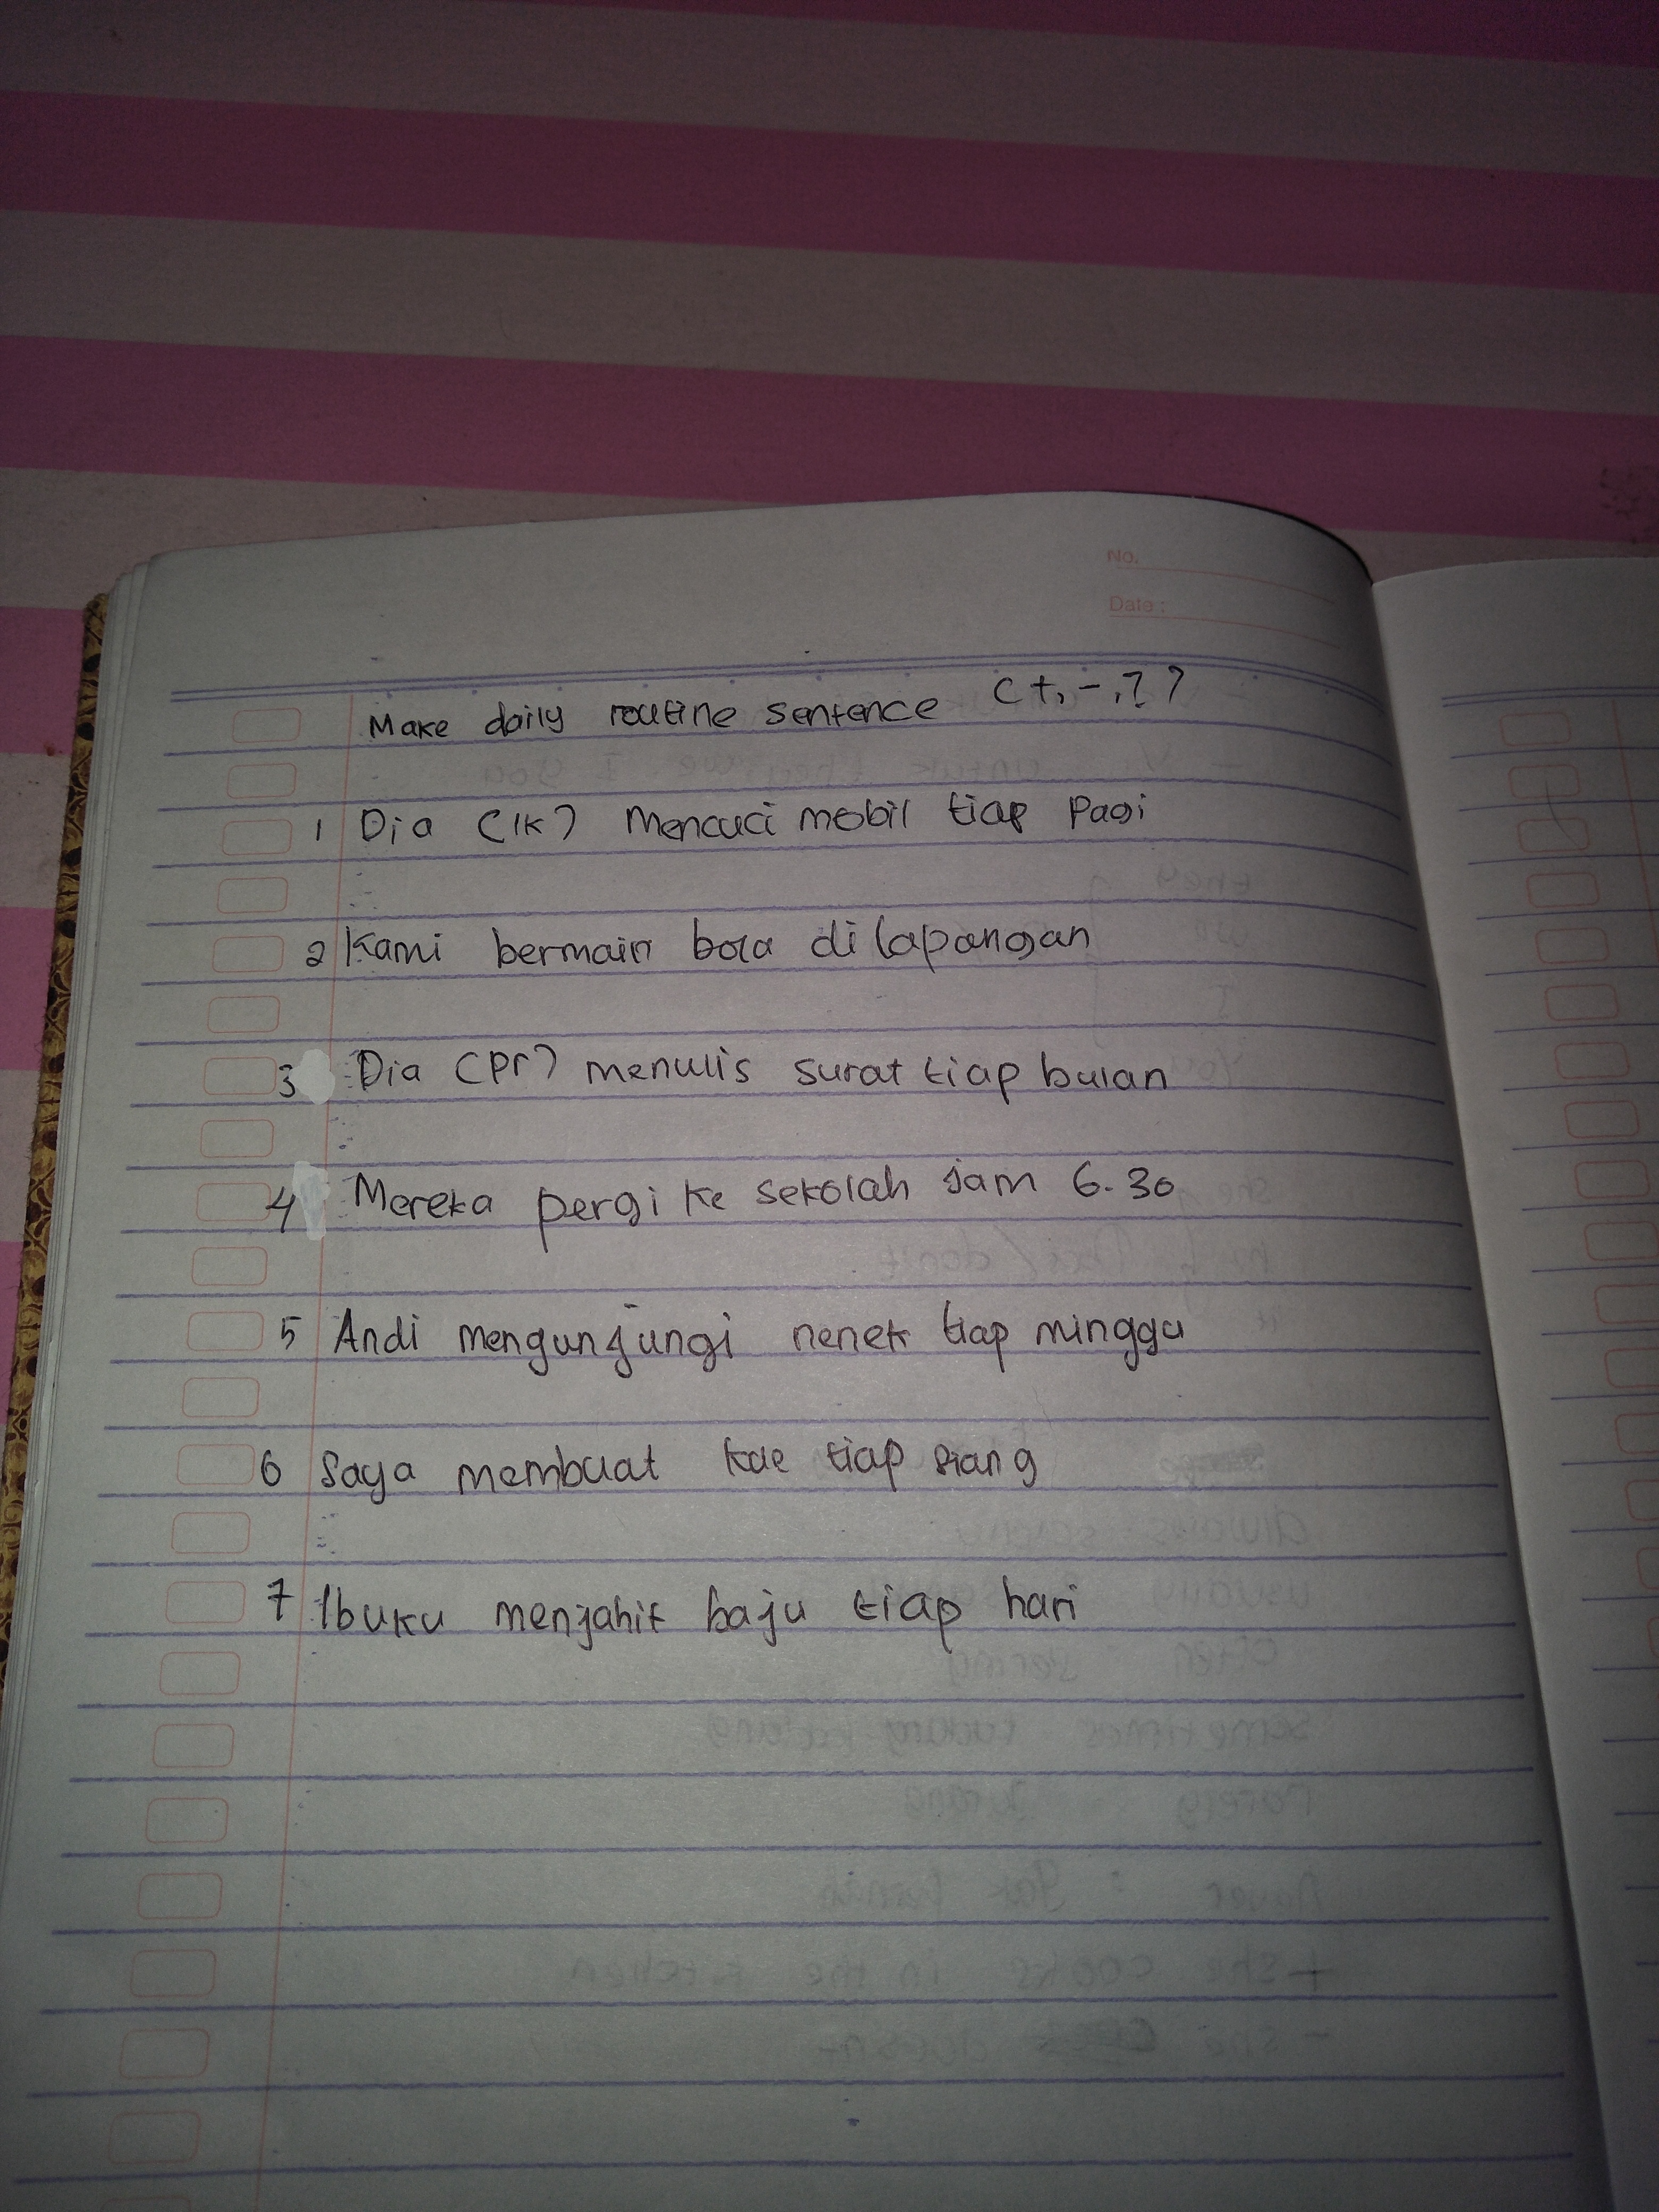 No.
Date :
Make daily routine sentence (+, -, ?)
1 Dia (lk) Mencuci mobil tiap Pagi
2 Kami bermain bola di lapangan
3 Dia (Pr) menulis surat tiap bulan
4 Mereka pergi ke sekolah jam 6.30
5 Andi mengunjungi nenek tiap minggu
6 Saya membuat kue tiap siang
7 Ibuku menjahit baju tiap hari